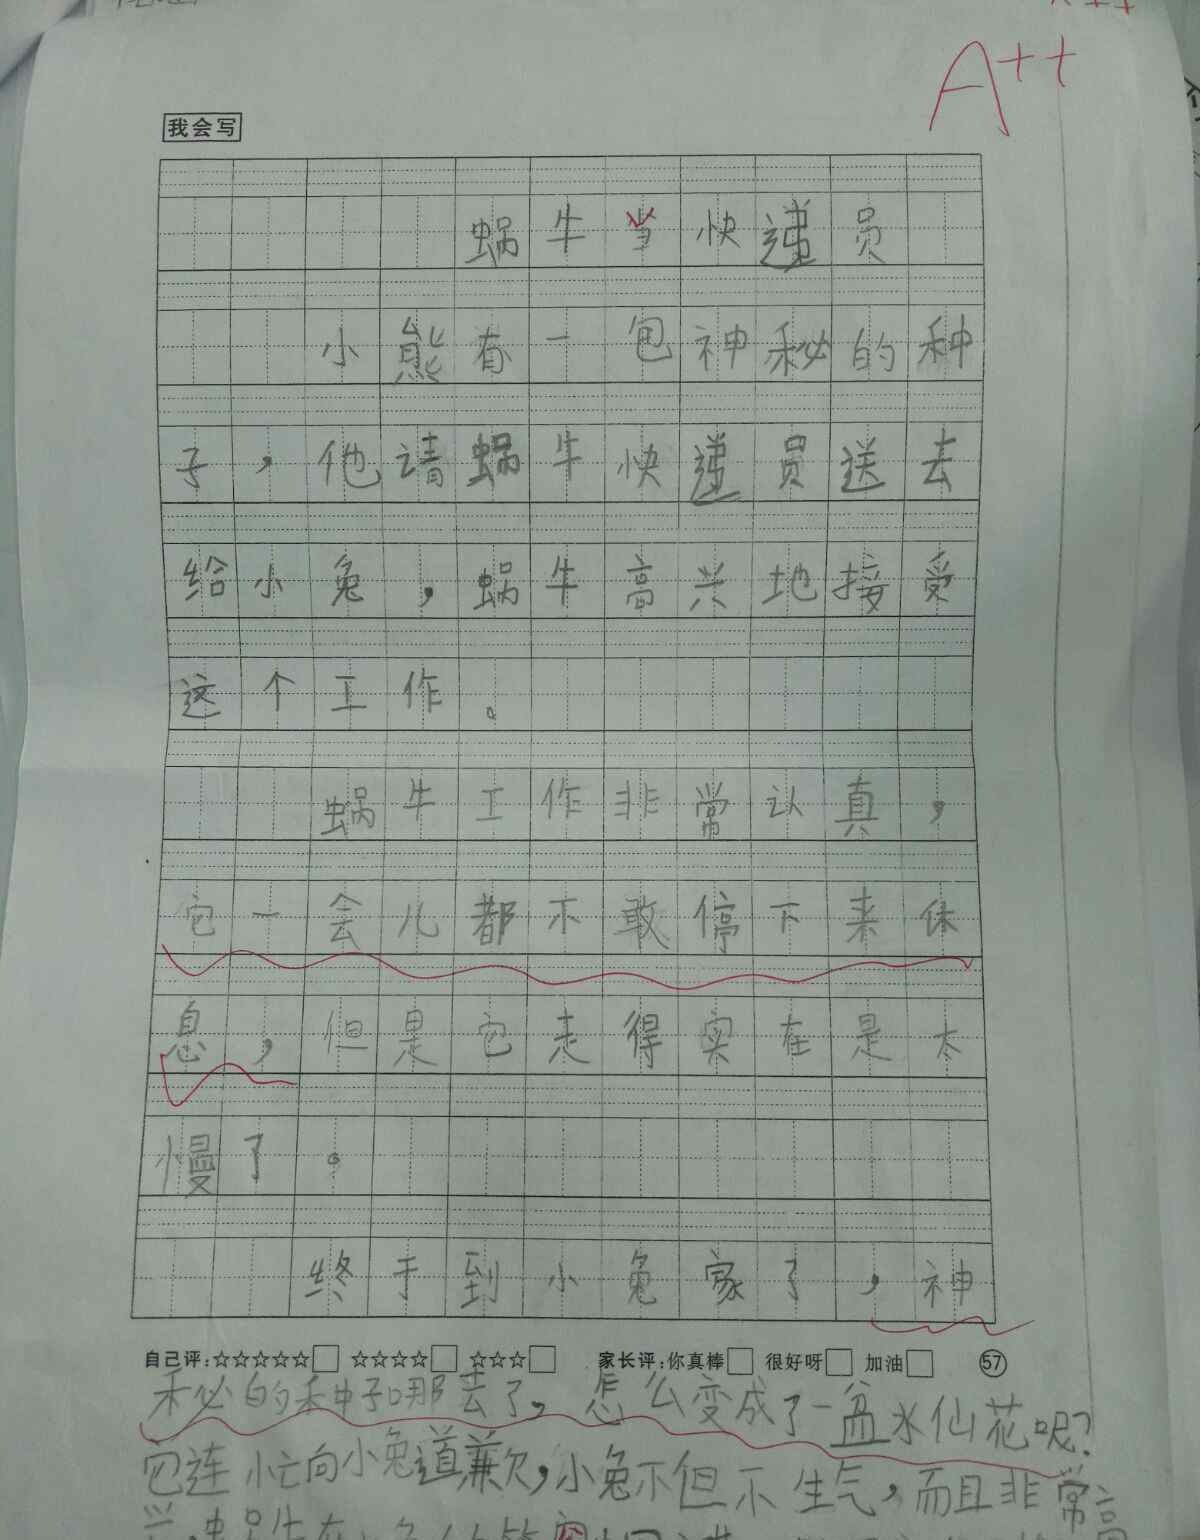 A++
我会写
蜗牛当快递员
小熊有一包神秘的种
子，他请蜗牛快递员送去
给小兔，蜗牛高兴地接受
这个工作。
蜗牛工作非常认真，
它一会儿都不敢停下来休
息，但是它走得实在是太
慢了。
终于到小兔家了，神
自己评:☆☆☆☆☆□ ☆☆☆☆□ ☆☆☆□ 家长评:你真棒□ 很好呀□ 加油□ 57
秘的种子哪去了。怎么变成了一盆水仙花呢?
它连忙向小兔道歉，小兔不但不生气，而且非常高